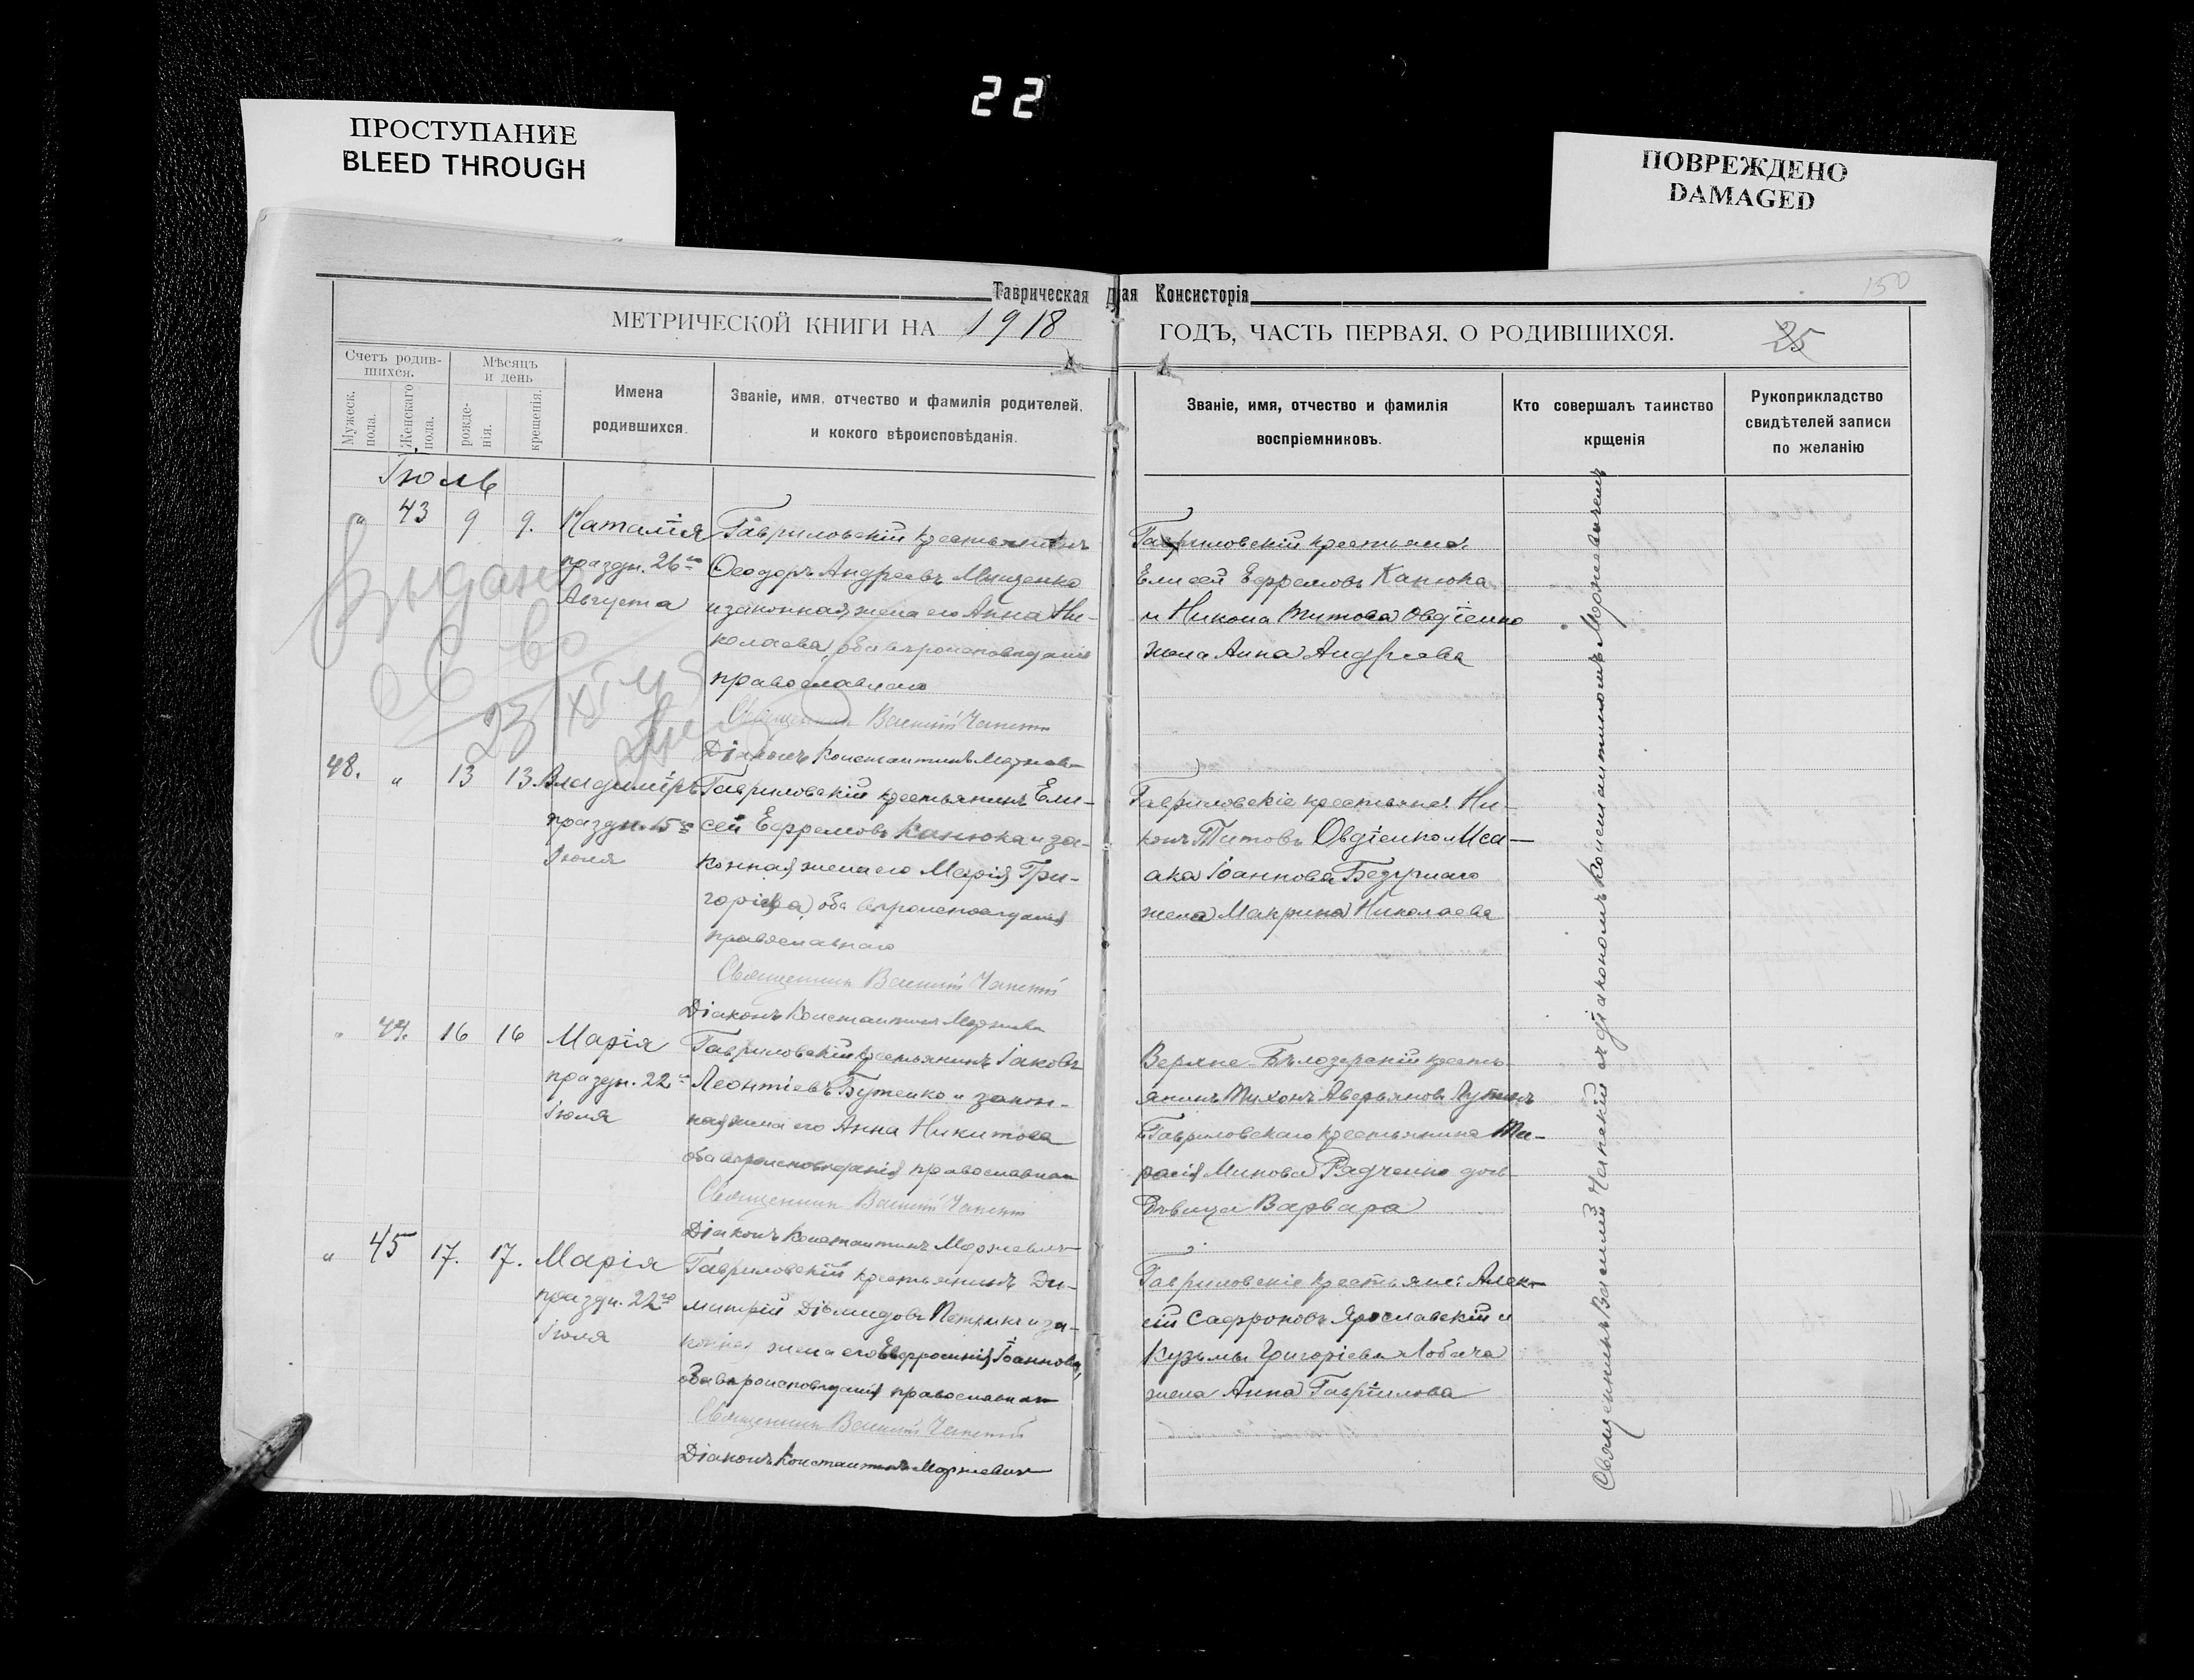 22
ПРОСТУПАНИЕ
BLEED THROUGH
ПОВРЕЖДЕНО
DAMAGED
150
Таврическая Д ая Консисторія
МЕТРИЧЕСКОЙ КНИГИ НА 1918 ГОДЪ, ЧАСТЬ ПЕРВАЯ, О РОДИВШИХСЯ.
25
Счетъ родив-
шихся.
Мужеск. пола.
Женскаго пола.
Мѣсяцъ
и день
рожде-
нія.
крещенія.
Имена
родившихся.
Званіе, имя, отчество и фамилія родителей,
и кокого вѣроисповѣданія.
Званіе, имя, отчество и фамилія
воспріемниковъ.
Кто совершалъ таинство
крщенія
Рукоприкладство
свидѣтелей записи
по желанію
Іюль
" 43 9 9. Наталія
праздн. 26го
Августа
Гавриловскій крестьянинъ
Ѳеодоръ Андреевъ Мищенко
и законная жена его Анна Ни-
колаева, оба вѣроисповѣданія
православнаго
Священникъ Василій Чапскій
Діаконъ Константинъ
Гавриловскій крестьяне:
Елисей Ефремовъ Канюка
и Никона Титова Овдіенко
жена Анна Андреева
Выдано
23 XI
48. " 13 13. Владиміръ
праздн. 15го
Іюля
Гавриловскій крестьянинъ Ели-
сей Ефремовъ Канюка и за-
конная жена его Марія Гри-
горіева, оба вѣроисповѣданія
православнаго
Священникъ Василій Чапскій
Діаконъ Константинъ
Гавриловскіе крестьяне: Ни-
конъ Титовъ Овдіенко и Иса-
ака Іоаннова
жена Макрина Николаева
" 44. 16 16 Марія
праздн. 22го
Іюля
Гавриловскій крестьянинъ Іаковъ
Леонтіевъ Бутенко и закон-
ная жена его Анна Никитова
оба вѣроисповѣданія православнаго
Священникъ Василій Чапскій
Діаконъ Константинъ Моржевичъ
Верхне-Бѣлозерскій кресть-
янинъ Тихонъ Аверьяновъ
Гавриловскаго крестьянина Та-
расія Минова Радченко дочь
Дѣвица Варвара
" 45 17. 17. Марія
праздн. 22го
Іюля
Гавриловскій крестьянинъ Ди-
митрій Діомидовъ и за-
конная жена его Евфросинія Іоаннова,
оба вѣроисповѣданія православнаго
Священникъ Василій Чапскій
Діаконъ Константинъ Моржевичъ
Гавриловскіе крестьяне: Алек-
сій Сафроновъ Ярославскій и
Кузьмы Григоріева Лобача
жена Анна Гавріилова
Священникъ Василій Чапскій съ діакономъ Константиномъ Моржевичемъ